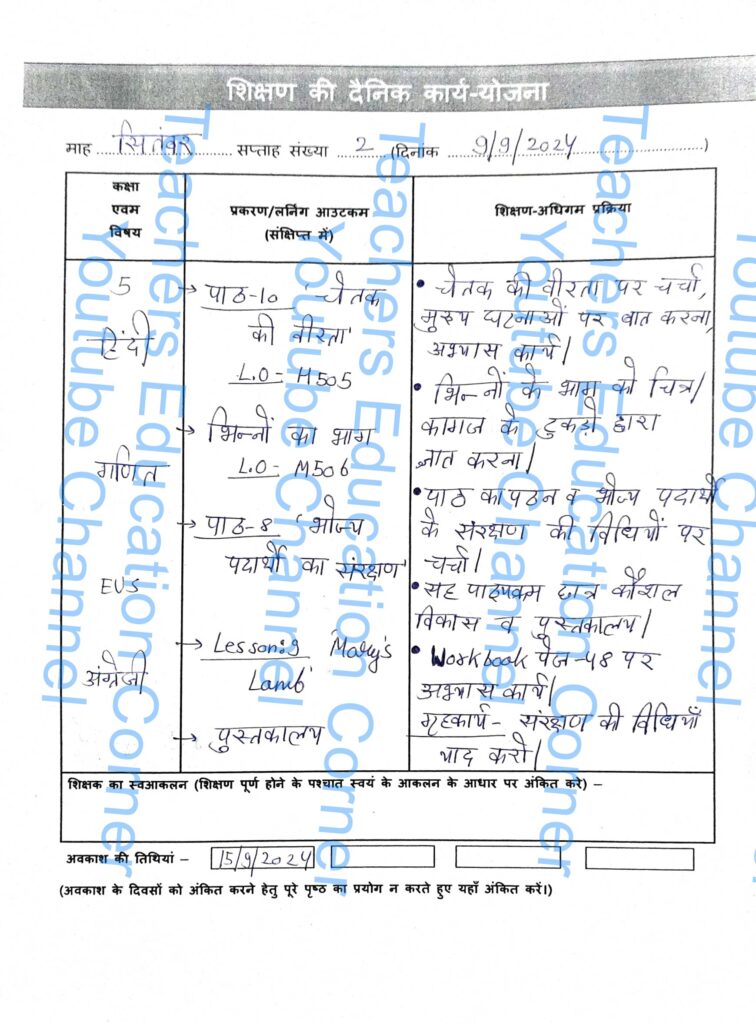 शिक्षण की दैनिक कार्य-योजना
माह सितंबर सप्ताह संख्या 2 (दिनांक 9/9/2024)
कक्षा
एवम
विषय
प्रकरण/लर्निंग आउटकम
(संक्षिप्त में)
शिक्षण-अधिगम प्रक्रिया
5
हिंदी
गणित
EVS
अंग्रेजी
→ पाठ-10 'चेतक
की वीरता'
L.O - H505
→ भिन्नों का भाग
L.O - M506
→ पाठ-8 'भोज्य
पदार्थों का संरक्षण'
→ Lesson:9 Mary's
Lamb'
→ पुस्तकालय
• चेतक की वीरता पर चर्चा,
मुख्य घटनाओं पर बात करना,
अभ्यास कार्य।
• भिन्नों के भाग को चित्र/
कागज के टुकड़ो द्वारा
ज्ञात करना।
• पाठ का पठन व भोज्य पदार्थों
के संरक्षण की विधियों पर
चर्चा।
• सह पाठ्यक्रम छात्र कौशल
विकास व पुस्तकालय।
• Workbook पेज-48 पर
अभ्यास कार्य।
गृहकार्य - संरक्षण की विधियाँ
याद करो।
शिक्षक का स्वआकलन (शिक्षण पूर्ण होने के पश्चात स्वयं के आकलन के आधार पर अंकित करे) –
अवकाश की तिथियां – 15/9/2024
(अवकाश के दिवसों को अंकित करने हेतु पूरे पृष्ठ का प्रयोग न करते हुए यहाँ अंकित करें।)
Teachers Education Corner
Youtube Channel
Teachers Education Corner
Youtube Channel
Teachers Education Corner
Youtube Channel
Youtube Channel